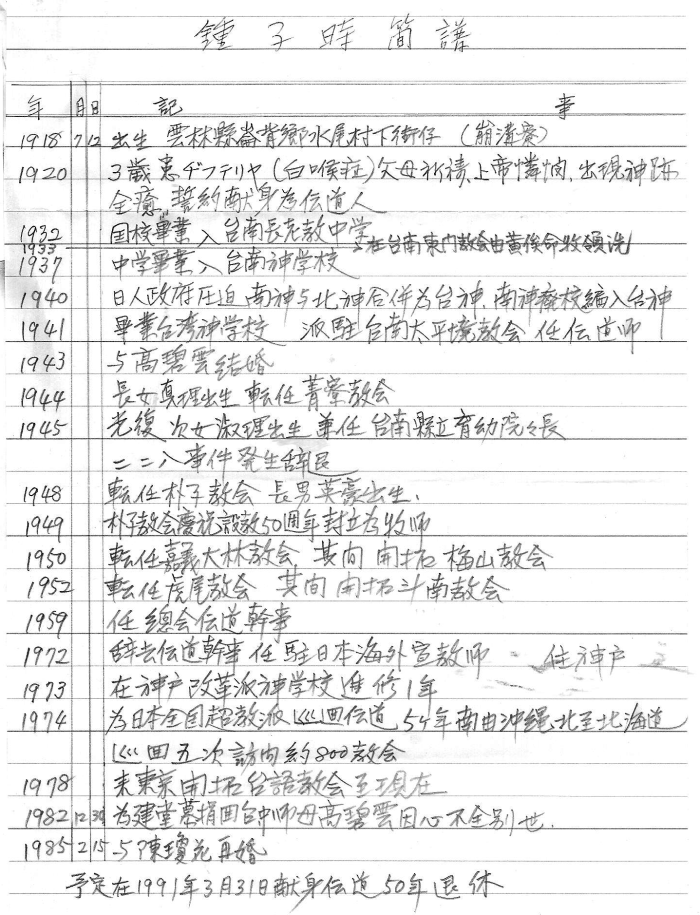 鍾子時簡譜
年 月 日 記 事
1918 7 12 出生 雲林縣崙背鄉水尾村下街仔 (崩溝寮)
1920 3歲患ヂフテリヤ(白喉症)父母祈禱上帝憐憫,出現神跡
全癒,誓約献身為伝道人
1932 国校畢業入台南長老教中学
1933 在台南東门教会由黃俟命牧領洗
1937 中学畢業入台南神学校
1940 日人政府圧迫 南神与北神合併為台神,南神廃校編入台神
1941 畢業台湾神学校 派駐台南太平境教会 任伝道师
1943 与高碧雲结婚
1944 長女真理出生 転任菁寮教会
1945 光復 次女淑理出生 兼任台南縣立育幼院々長
二二八事件発生辞退
1948 転任朴子教会 長男英豪出生.
1949 朴子教会慶祝設教50週年封立為牧师
1950 転任嘉義大林教会 其间 開拓梅山教会
1952 転任虎尾教会 其间 開拓斗南教会
1959 任總会伝道幹事
1972 辞去伝道幹事任駐日本海外宣教师 住神户
1973 在神户改革派神学校進修1年
1974 為日本全国超教派巡回伝道 5ケ年南由沖縄北至北海道
巡回五次訪问約800教会
1978 来東京開拓台語教会至現在
1982 12 30 为建堂募捐回台中师母高碧雲因心不全別世.
1985 2 15 与陳瓊花再婚
予定在1991年3月31日献身伝道50年退休